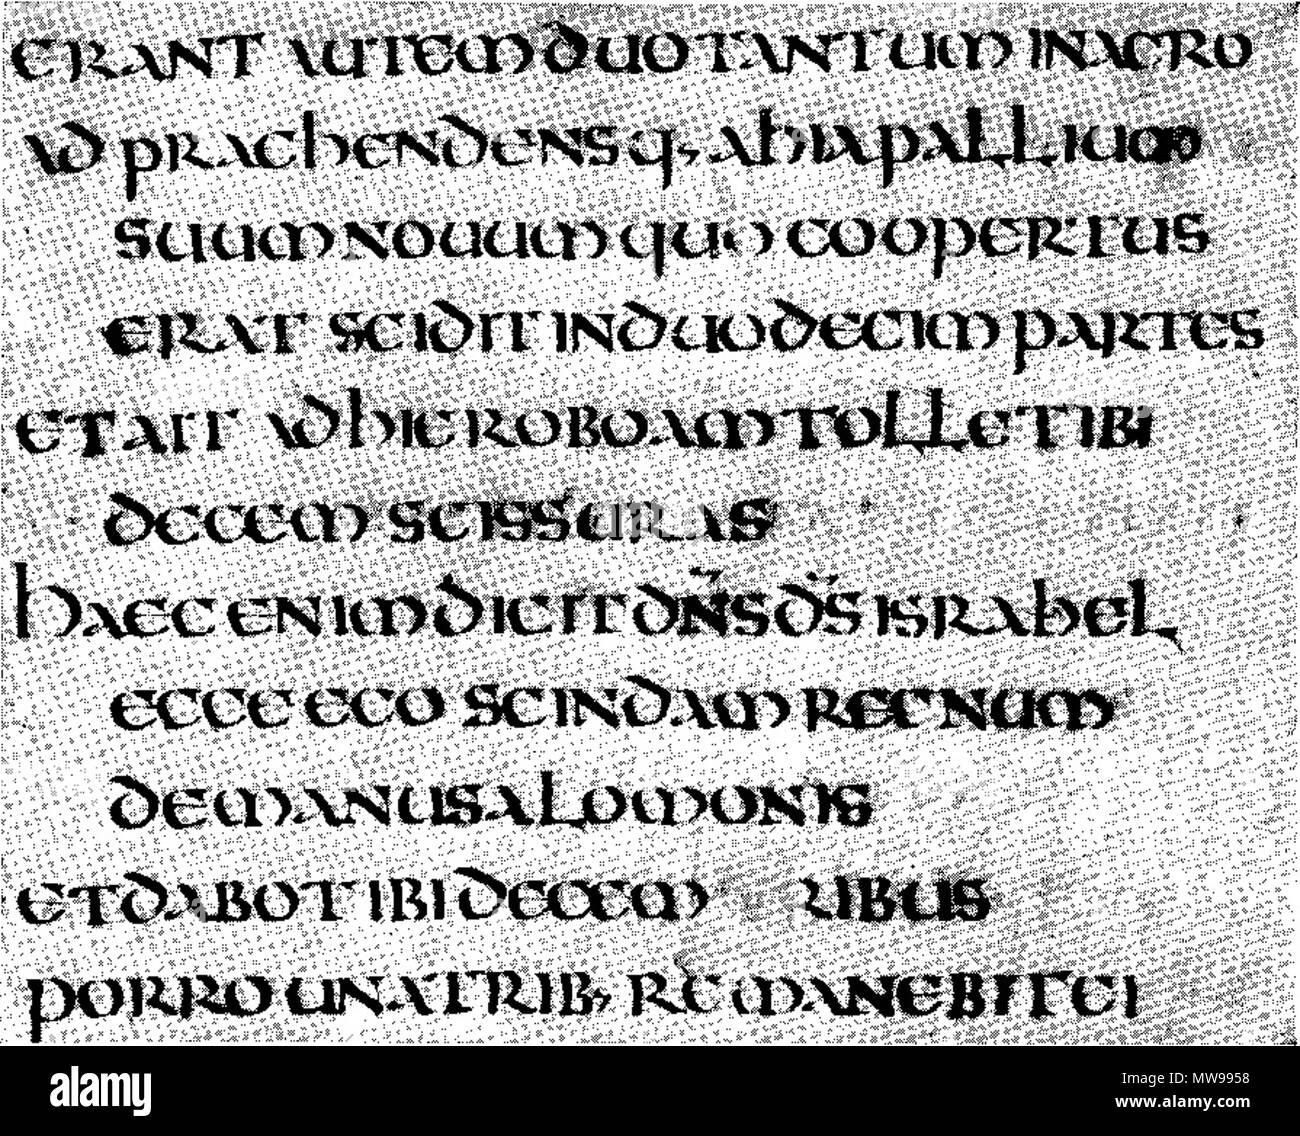 ERANT AUTEM DUO TANTUM IN AGRO
ADPRAEHENDENSQ, AHIA PALLIUM
SUUM NOUUM QUO COOPERTUS
ERAT SCIDIT IN DUODECIM PARTES
ET AIT AD HIEROBOAM TOLLE TIBI
DECEM SCISSURAS
HAEC ENIM DICIT DN̄S D̄S ISRAHEL
ECCE EGO SCINDAM REGNUM
DE MANU SALOMONIS
ET DABO TIBI DECEM RIBUS
PORRO UNA TRIB, REMANEBIT EI
alamy
Image ID: MW9958
www.alamy.com